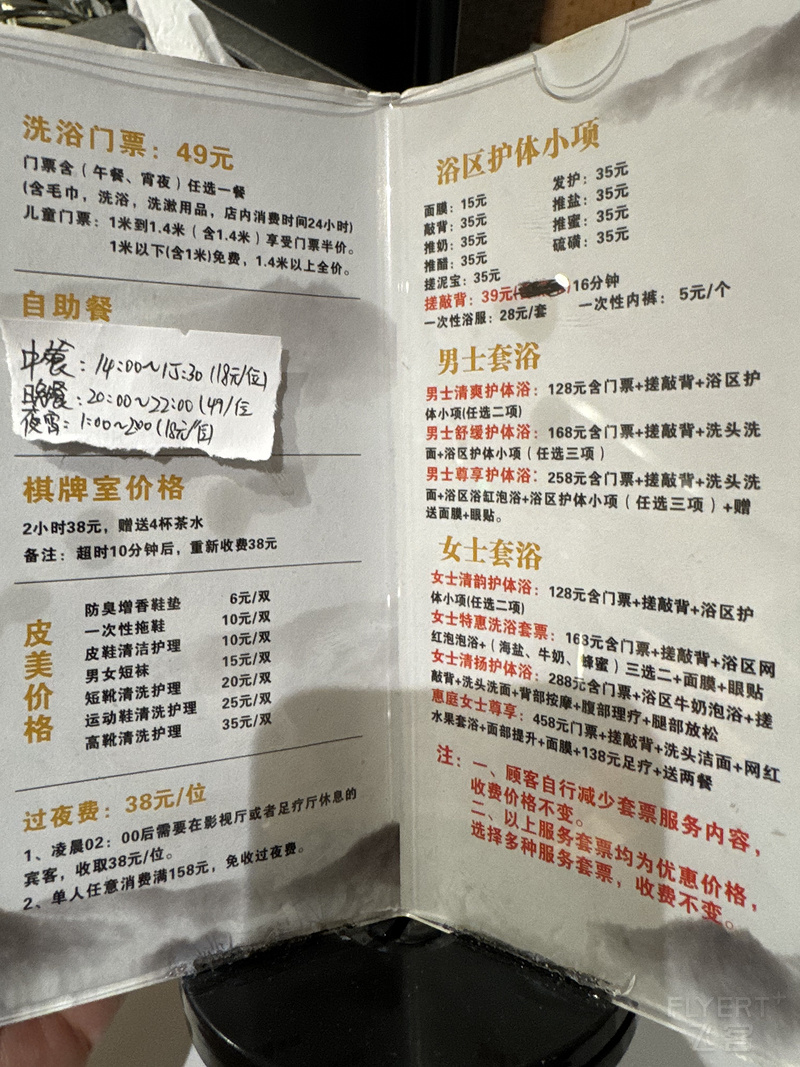 洗浴门票：49元
门票含（午餐、宵夜）任选一餐
(含毛巾，洗浴，洗漱用品，店内消费时间24小时)
儿童门票：1米到1.4米（含1.4米）享受门票半价。
1米以下(含1米)免费，1.4米以上全价。
自助餐
中餐：14:00~15:30(18元/位)
晚餐：20:00~22:00(49/位
夜宵：1:00~2:00(18元/位)
棋牌室价格
2小时38元，赠送4杯茶水
备注：超时10分钟后，重新收费38元
皮美价格
防臭增香鞋垫 6元/双
一次性拖鞋 10元/双
皮鞋清洁护理 10元/双
男女短袜 15元/双
短靴清洗护理 20元/双
运动鞋清洗护理 25元/双
高靴清洗护理 35元/双
过夜费：38元/位
1、凌晨02：00后需要在影视厅或者足疗厅休息的
宾客，收取38元/位。
2、单人任意消费满158元，免收过夜费。
浴区护体小项
面膜：15元 发护：35元
敲背：35元 推盐：35元
推奶：35元 推蜜：35元
推醋：35元 硫磺：35元
搓泥宝：35元
搓敲背：39元/ 16分钟
一次性浴服：28元/套 一次性内裤：5元/个
男士套浴
男士清爽护体浴：128元含门票+搓敲背+浴区护
体小项(任选二项)
男士舒缓护体浴：168元含门票+搓敲背+洗头洗
面+浴区护体小项（任选三项）
男士尊享护体浴：258元含门票+搓敲背+洗头洗
面+浴区浴缸泡浴+浴区护体小项（任选三项）+赠
送面膜+眼贴。
女士套浴
女士清韵护体浴：128元含门票+搓敲背+浴区护
体小项(任选二项)
女士特惠洗浴套票：163元含门票+搓敲背+浴区网
红泡泡浴+（海盐、牛奶、蜂蜜）三选二+面膜+眼贴
女士清扬护体浴：288元含门票+浴区牛奶泡浴+搓
敲背+洗头洗面+背部按摩+腹部理疗+腿部放松
惠庭女士尊享：458元门票+搓敲背+洗头洁面+网红
水果套浴+面部提升+面膜+138元足疗+送两餐
注：一、顾客自行减少套票服务内容，
收费价格不变。
二、以上服务套票均为优惠价格，
选择多种服务套票，收费不变。
FLYERT+
飞客